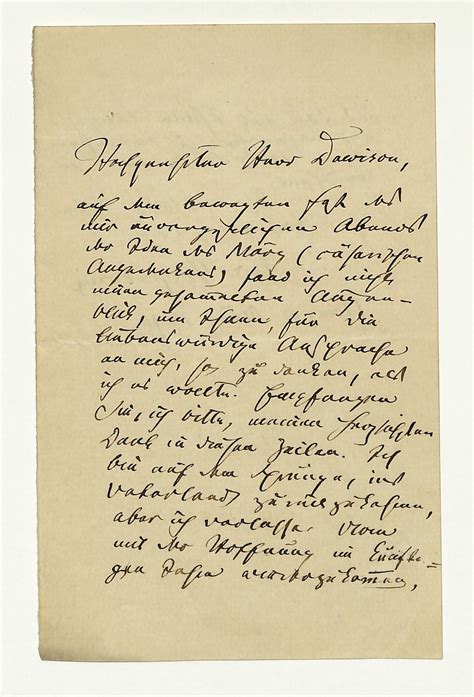 Hochgeehrter Herr Dawison,
auf dem bewegten Fest des
mir unvergeßlichen Abends
der Iden des März (cäsarischen
Angedenkens) fand ich nicht
einen gesammelten Augen-
blick, um Ihnen, für die
liebenswürdige Ansprache
an mich, so zu danken, als
ich es wollte. Empfangen
Sie, ich bitte, meinen herzlichsten
Dank in diesen Zeilen. Ich
bin auf dem Sprunge, ins
Vaterland zurückzukehren,
aber ich verlasse Rom
mit der Hoffnung im künfti=
gen Jahre wiederzukommen,